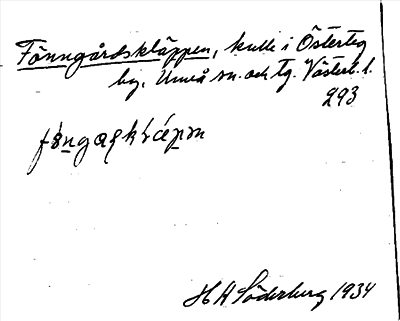 Fönngårdskläppen, kulle i Österteg
by, Umeå sn. och tg. Västerb. l.
293
H H Söderberg 1934